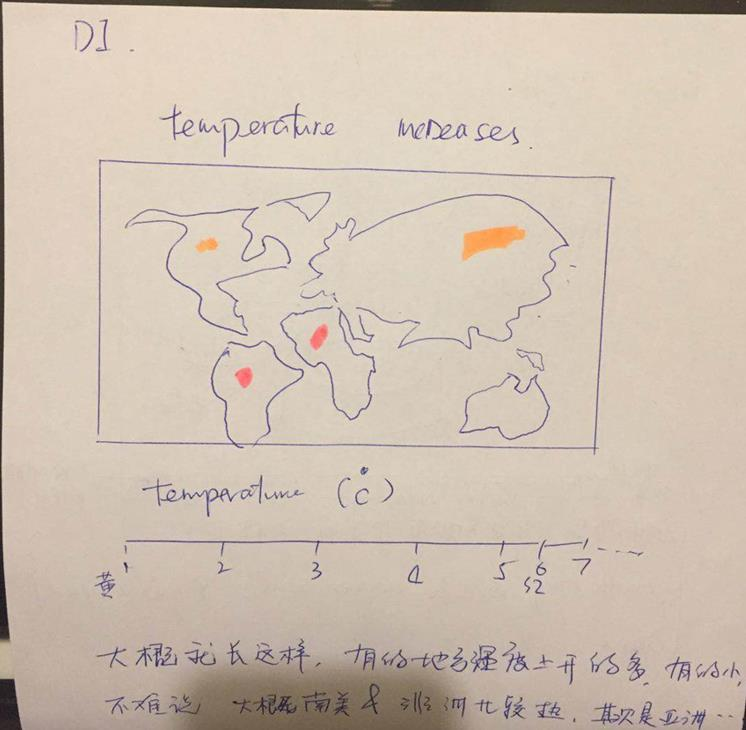 DI.
temperature increases.
temperature (°C)
1 2 3 4 5 6 7 ......
黄 52
大概就长这样, 有的地方温度上升的多, 有的小,
不难说 大概是南美 & 非洲比较热, 其次是亚洲...